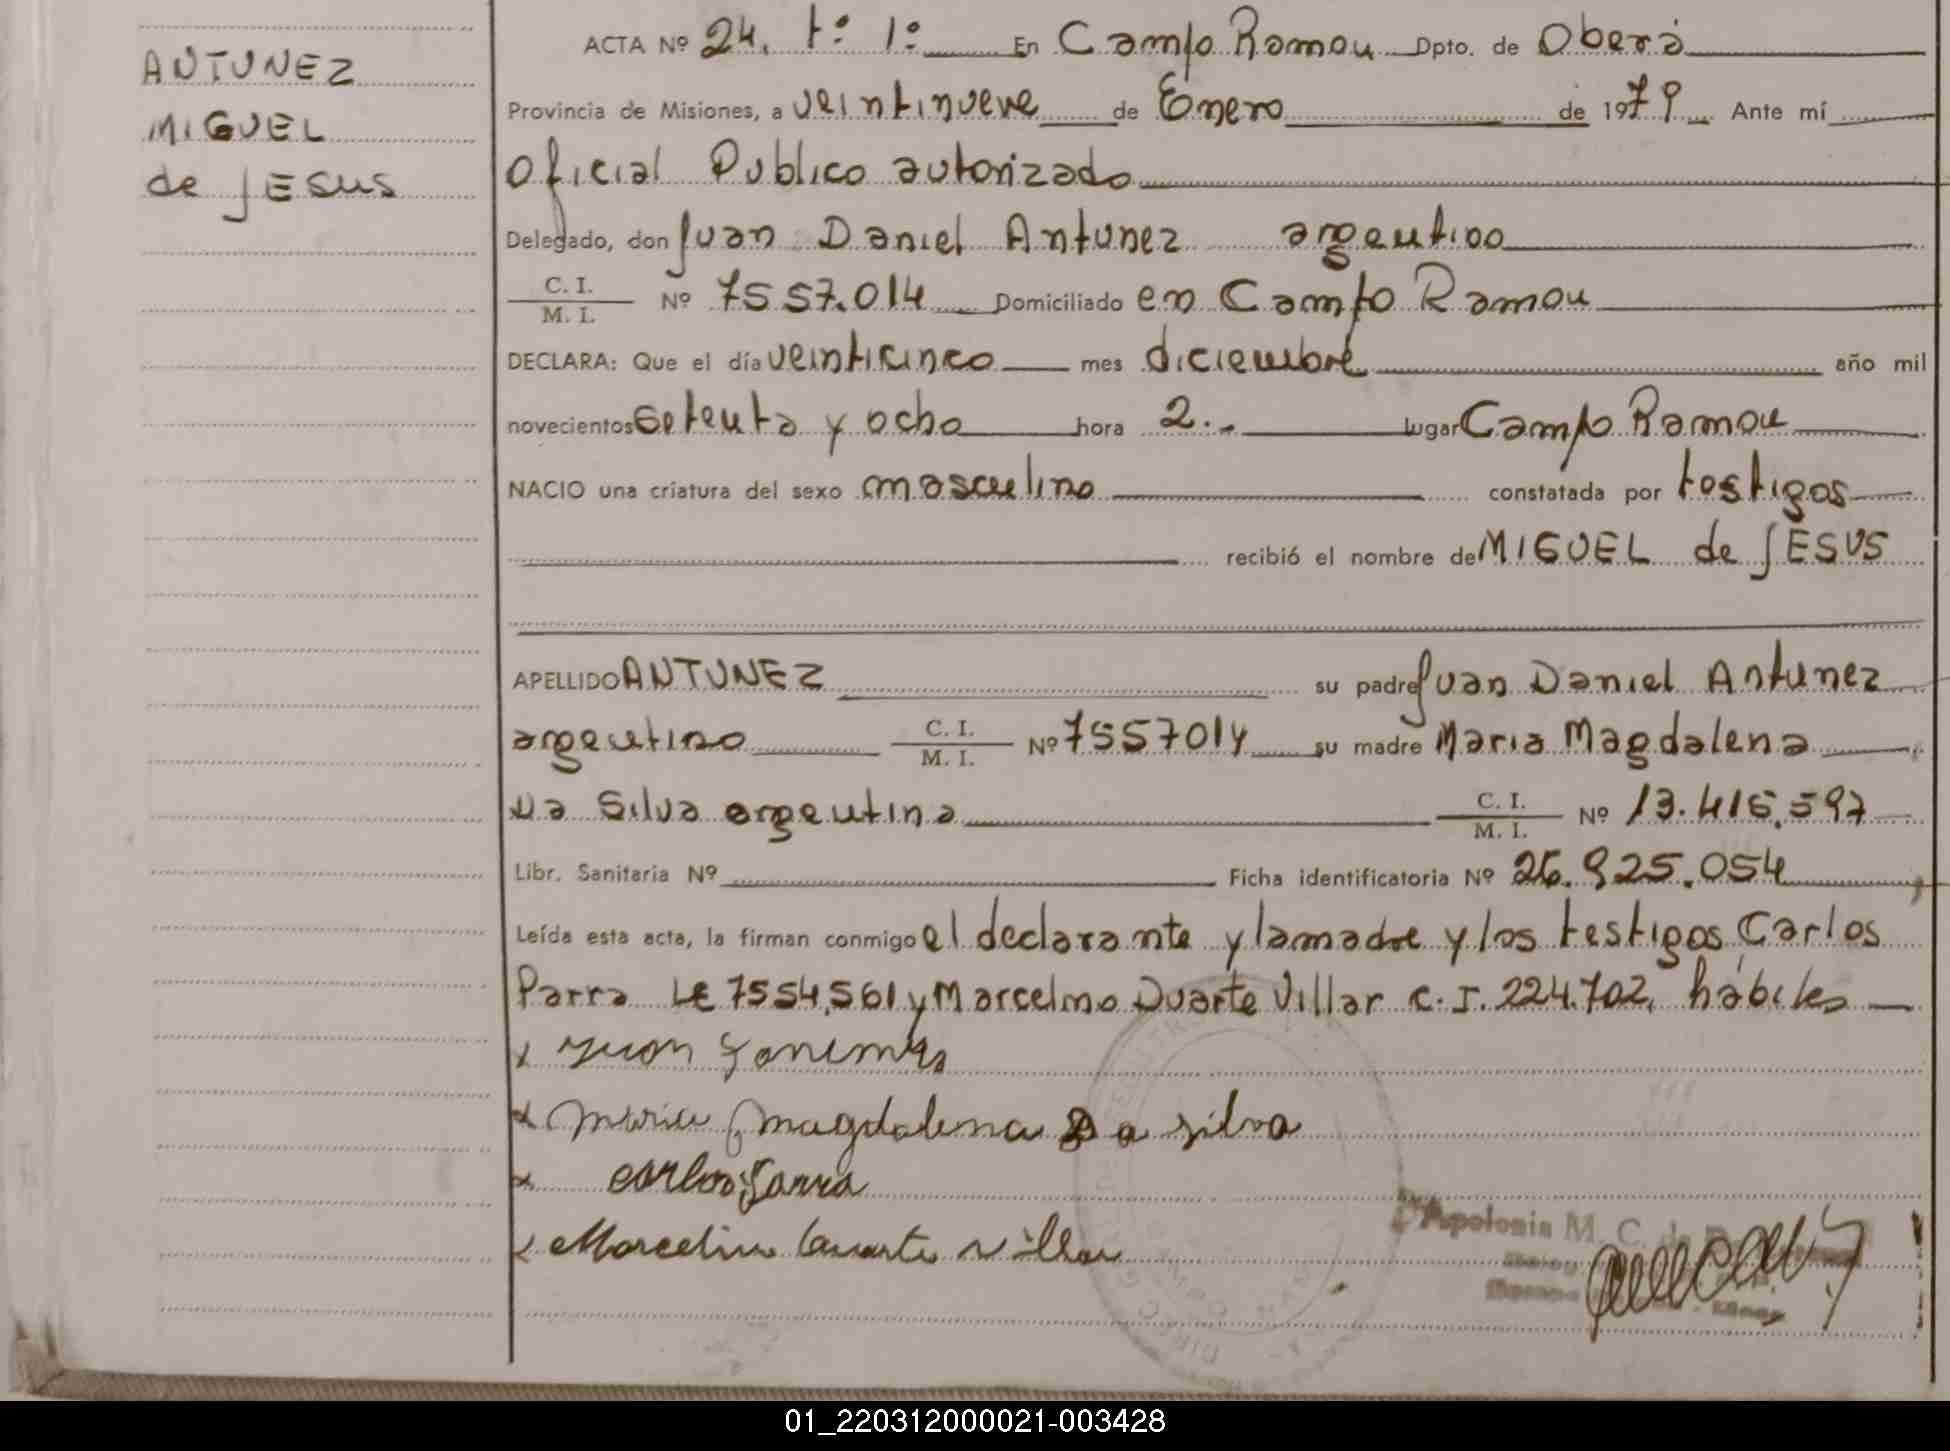 ANTUNEZ
MIGUEL
de JESUS
ACTA Nº 24. tº 1º En Campo Ramou Dpto. de Oberá
Provincia de Misiones, a veintinueve de Enero de 1979 Ante mí
Oficial Publico autorizado
Delegado, don Juan Daniel Antunez argentino
C. I.
M. I. Nº 7557.014 Domiciliado en Campo Ramou
DECLARA: Que el día veinticinco mes diciembre año mil
novecientos setenta y ocho hora 2.- lugar Campo Ramou
NACIO una criatura del sexo masculino constatada por testigos
recibió el nombre de MIGUEL de JESUS
APELLIDO ANTUNEZ su padre Juan Daniel Antunez
argentino C. I.
M. I. Nº 7557014 su madre Maria Magdalena
Da Silva argentina C. I.
M. I. Nº 13.416.597
Libr. Sanitaria Nº Ficha identificatoria Nº 26.925.054
Leída esta acta, la firman conmigo el declarante y la madre y los testigos Carlos
Parra LE 7554.561 y Marcelino Duarte Villar C.I. 224.702, hábiles
x Juan
x Maria Magdalena Da silva
x Carlos Parra
x Marcelino Duarte Villar
Apolonia M. C. de
01_220312000021-003428